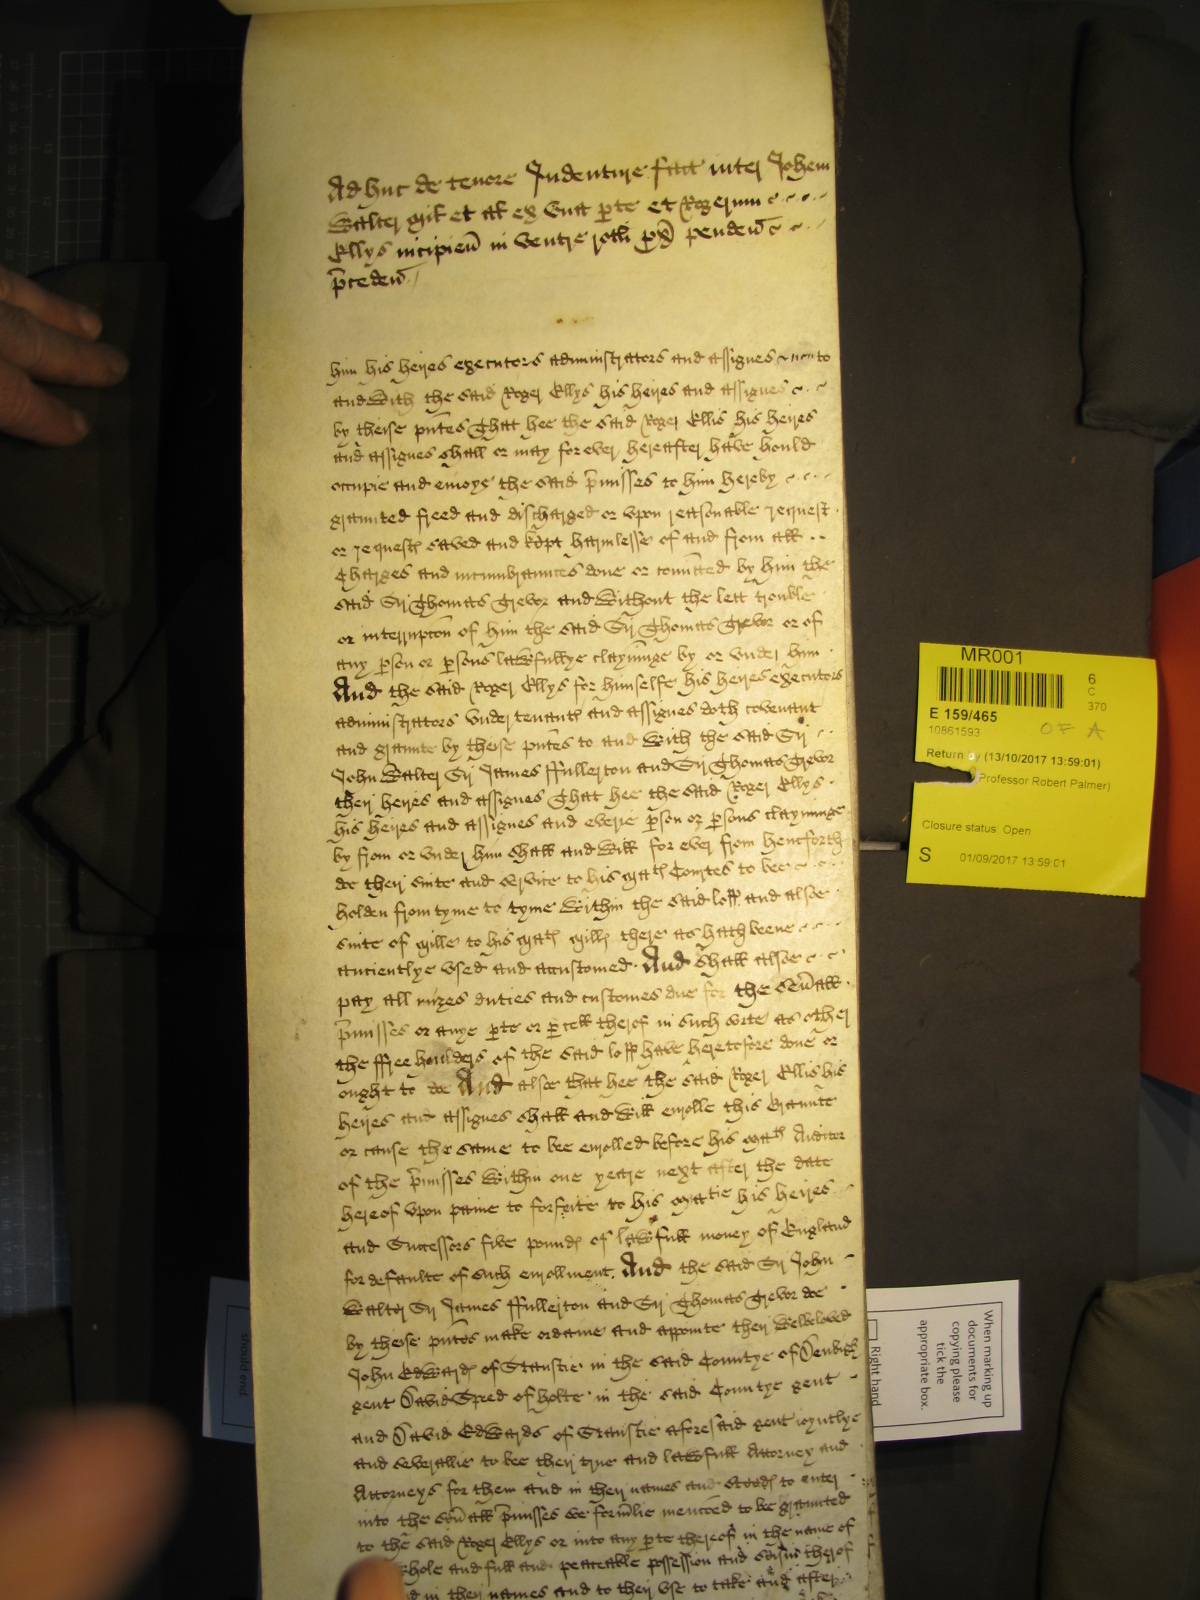 Adhuc de tenore Indenture fact inter Johem
Walter milt et al ex una pte et Rogerum
Ellys incipien in ventre rotli px penden
preceden
him his heires executors administrators and assignes to
and with the said Roger Ellys his heires and assignes
by theise pntes That hee the said Roger Ellis his heires
and assignes shall or may for ever hereafter have hould
occupie and enioye the said pmisses to him hereby
graunted freed and discharged or upon reasonable request
or requests saved and kept harmlesse of and from all
Charges and incumbraunces done or comitted by him the
said Sir Thomas Trevor and without the lett trouble
or interrupcon of him the said Sir Thomas Trevor or of
any pson or psons lawfullye clayminge by or under him
And the said Roger Ellys for himselfe his heires executors
administrators undertenants and assignes doth covenant
and graunte by theise pntes to and with the said Sir
John Walter Sir James Ffullerton and Sir Thomas Trevor
their heires and assignes That hee the said Roger Ellys
his heires and assignes and everie pson or psons clayminge
by from or under him shall and will for ever from hencforth
doe their suite and service to his matis Courtes to bee
holden from tyme to tyme within the said lopp and alsoe
suite of mille to his matis mills there as hath beene
aunciently used and accustomed. And shall alsoe
pay all mizes duties and customes due for the sevall
pmisses or anye pte or pcell therof in such sorte as other
the ffreehoulders of the said lopp have heretofore done or
ought to doe And alsoe that hee the said Roger Ellis his
heires and assignes shall and will enrolle this Graunte
or cause the same to bee enrolled before his matis Auditor
of the pmisses within one yeare next after the date
hereof upon paine to forfeite to his matie his heires
and Successors five pounds of lawfull money of England
for defaulte of such enrollment. And the said Sir John
Walter Sir James Ffullerton and Sir Thomas Trevor doe
by theise pntes make ordaine and appointe their welbeloved
John Edwards of Stanstie in the said Countye of Denbigh
gent David Speed of Holte in the said Countye gent
and David Edwards of Stanstie aforesaid gent ioyntlye
and severallie to bee their true and lawfull Attorney and
Attorneys for them and in their names and steeds to enter
into the sevall pmisses we formlie menconed to be graunted
to the said Roger Ellys or into any pte thereof in the name of
whole and full and peaceable possession and seisin therof
in their names and to their use to take and after
MR001
6
C
370
E 159/465
10861593
OF A
Return by (13/10/2017 13:59:01)
Professor Robert Palmer)
Closure status: Open
S
01/09/2017 13:59:01
When marking up
documents for
copying please
tick the
appropriate box.
Right hand
should end.